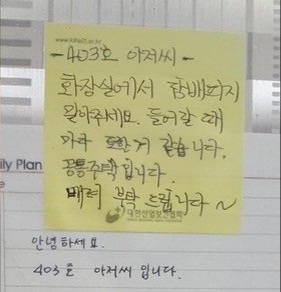 -403호 아저씨-
화장실에서 담배피지
말아주세요. 들어갈 때
마다 토할 거 같습니다.
공동주택입니다.
배려 부탁 드립니다~
대한산업보건협회
ily Plan
안녕하세요.
403호 아저씨 입니다.